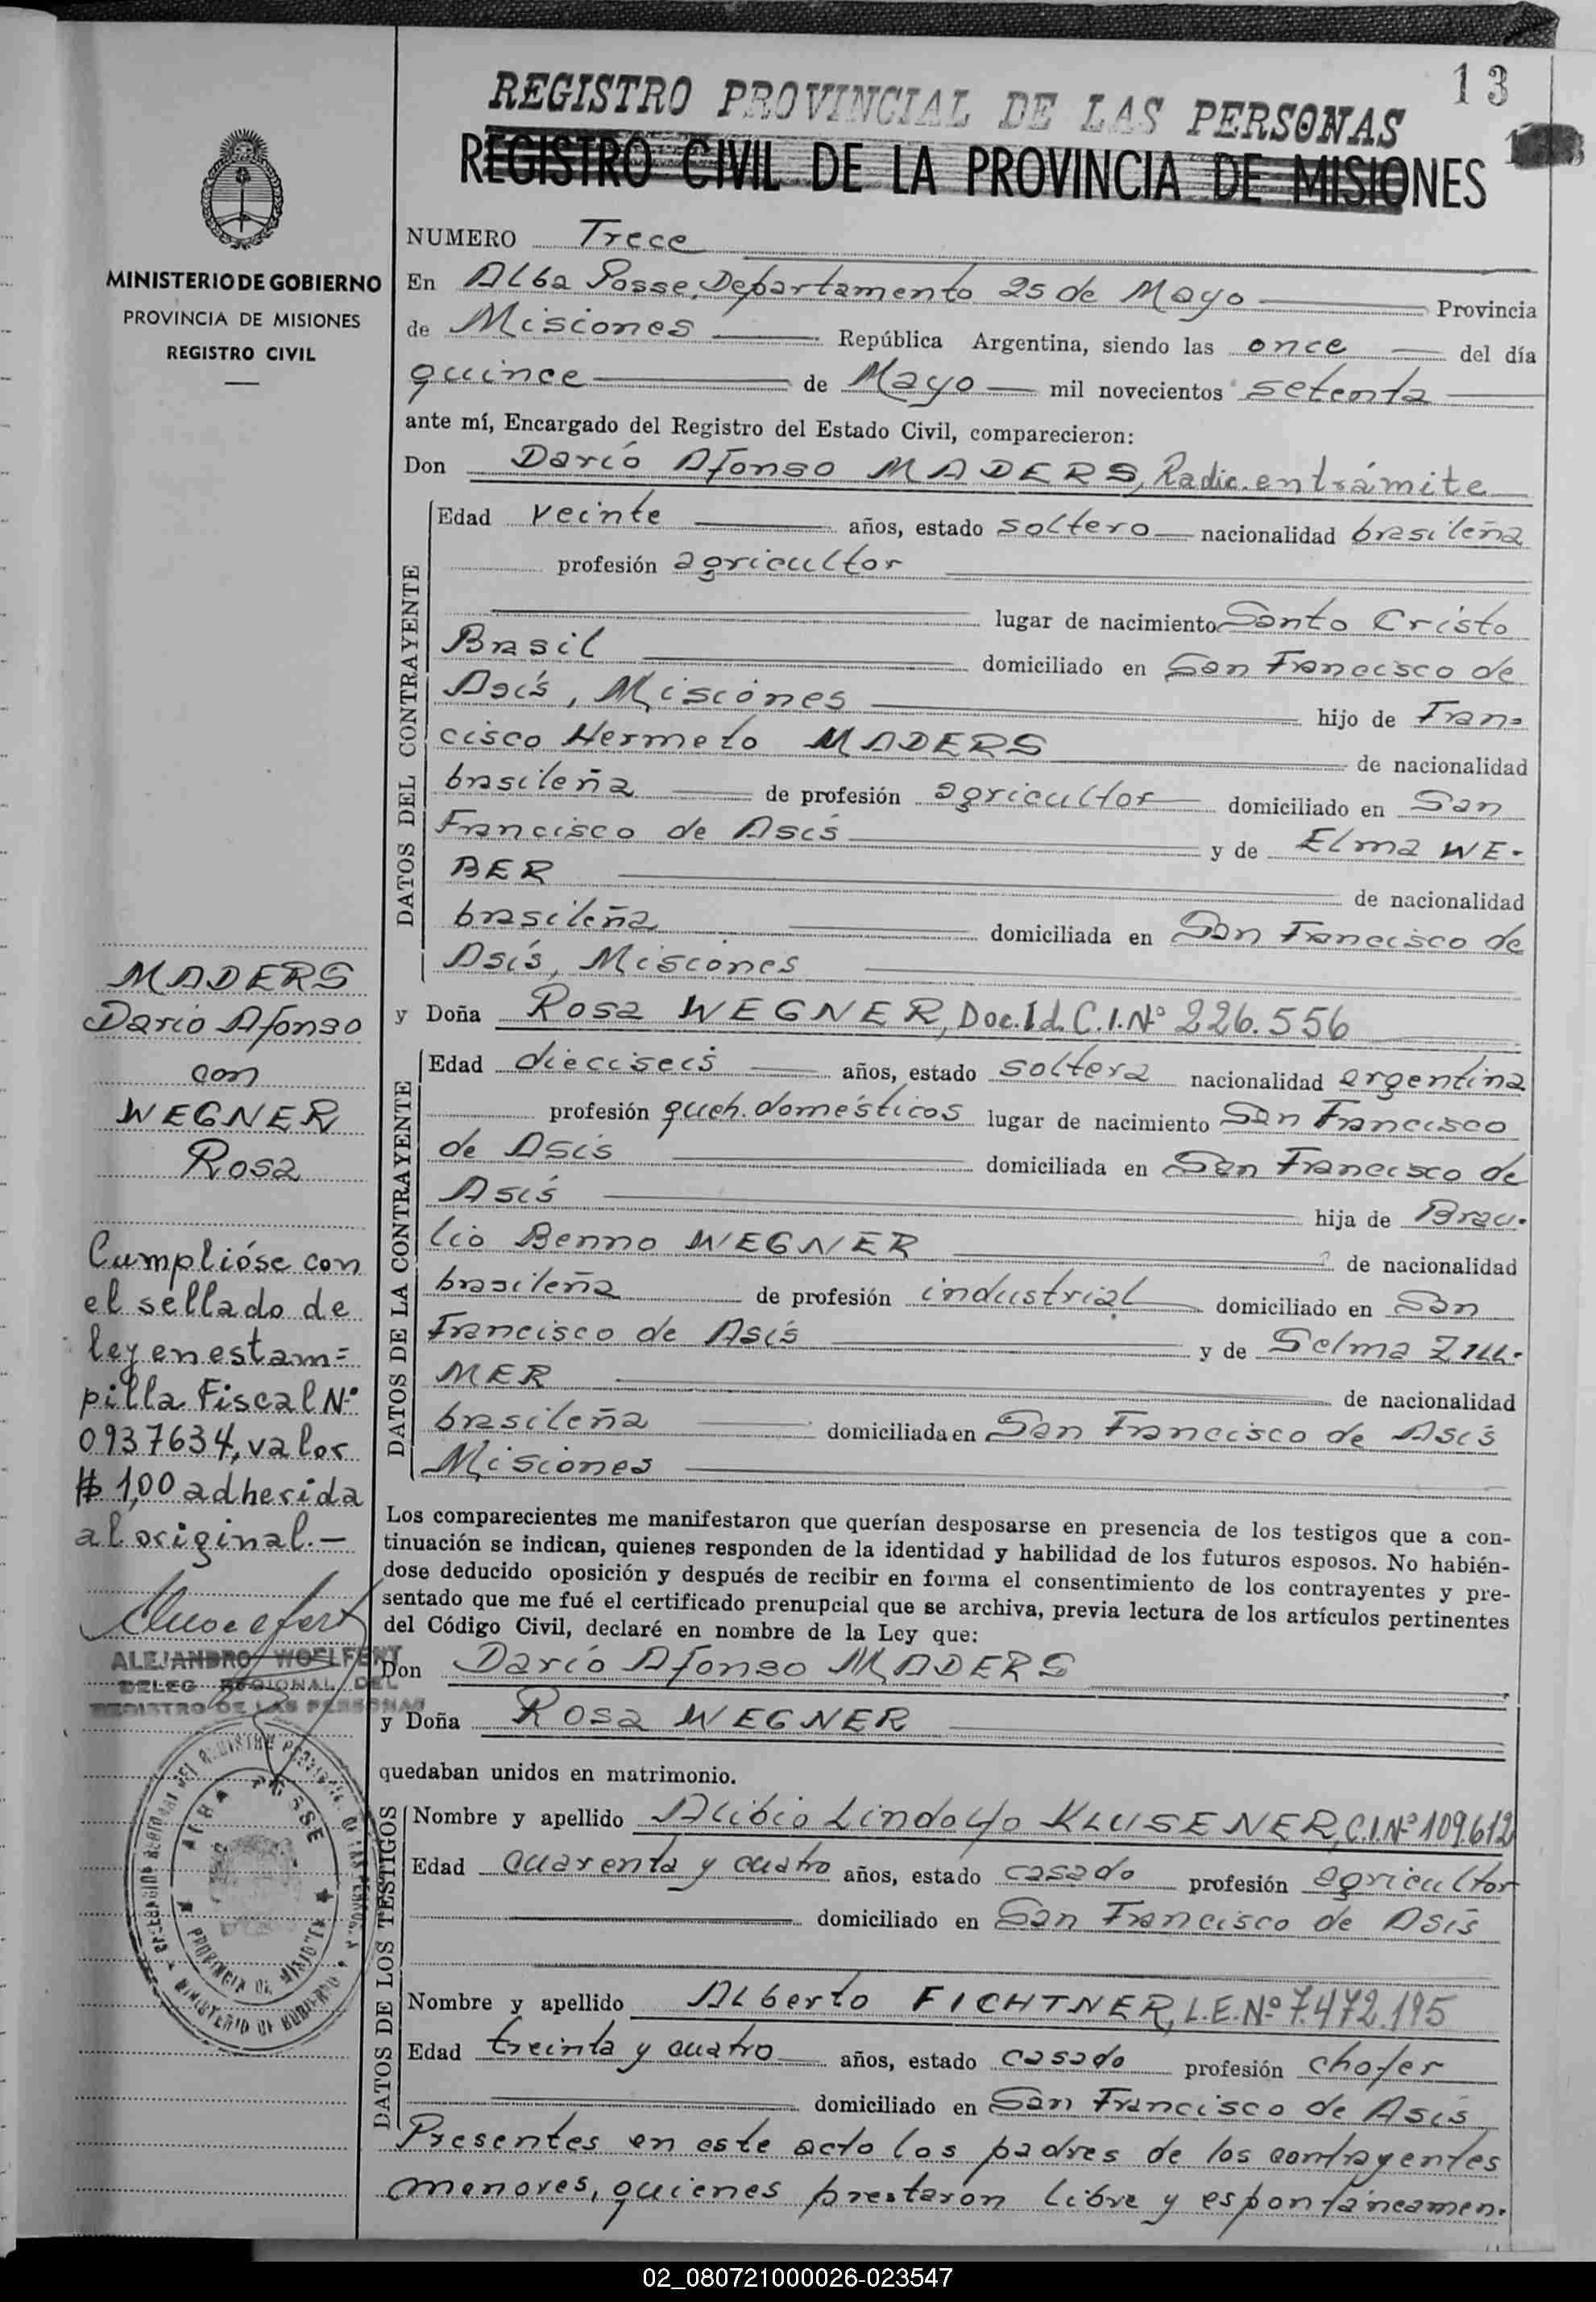 13
REGISTRO PROVINCIAL DE LAS PERSONAS
REGISTRO CIVIL DE LA PROVINCIA DE MISIONES
MINISTERIO DE GOBIERNO
PROVINCIA DE MISIONES
REGISTRO CIVIL
NUMERO Trece
En Alba Posse, Departamento 25 de Mayo Provincia
de Misiones República Argentina, siendo las once del día
quince de Mayo mil novecientos setenta
ante mí, Encargado del Registro del Estado Civil, comparecieron:
Don Darío Afonso MADERS, Radic. en trámite
DATOS DEL CONTRAYENTE
Edad veinte años, estado soltero nacionalidad brasileña
profesión agricultor
lugar de nacimiento Santo Cristo
Brasil domiciliado en San Francisco de
Asís, Misiones hijo de Fran=
cisco Hermeto MADERS de nacionalidad
brasileña de profesión agricultor domiciliado en San
Francisco de Asís y de Elma WE-
BER de nacionalidad
brasileña domiciliada en San Francisco de
Asís, Misiones
y Doña Rosa WEGNER, Doc. Id. C.I. Nº 226.556
DATOS DE LA CONTRAYENTE
Edad dieciseis años, estado soltera nacionalidad argentina
profesión queh. domésticos lugar de nacimiento San Francisco
de Asís domiciliada en San Francisco de
Asís hija de Brau-
lio Benno WEGNER de nacionalidad
brasileña de profesión industrial domiciliado en San
Francisco de Asís y de Selma ZIM-
MER de nacionalidad
brasileña domiciliada en San Francisco de Asís
Misiones
Los comparecientes me manifestaron que querían desposarse en presencia de los testigos que a con-
tinuación se indican, quienes responden de la identidad y habilidad de los futuros esposos. No habién-
dose deducido oposición y después de recibir en forma el consentimiento de los contrayentes y pre-
sentado que me fué el certificado prenupcial que se archiva, previa lectura de los artículos pertinentes
del Código Civil, declaré en nombre de la Ley que:
Don Darío Afonso MADERS
y Doña Rosa WEGNER
quedaban unidos en matrimonio.
DATOS DE LOS TESTIGOS
Nombre y apellido Alibio Lindolfo KLUSENER, C.I. Nº 109.612
Edad cuarenta y cuatro años, estado casado profesión agricultor
domiciliado en San Francisco de Asís
Nombre y apellido Alberto FICHTNER, L.E. Nº 7.472.195
Edad treinta y cuatro años, estado casado profesión chofer
domiciliado en San Francisco de Asís
Presentes en este acto los padres de los contrayentes
menores, quienes prestaron libre y espontáneamen-
MADERS
Darío Afonso
con
WEGNER
Rosa
Cumplióse con
el sellado de
ley en estam=
pilla Fiscal Nº
0937634, valor
$ 1,00 adherida
al original.-
ALEJANDRO WOELFERT
DELEG REGIONAL DEL
REGISTRO DE LAS PERSONAS
ALBA POSSE
PROVINCIA DE MISIONES
MINISTERIO DE GOBIERNO
02_080721000026-023547